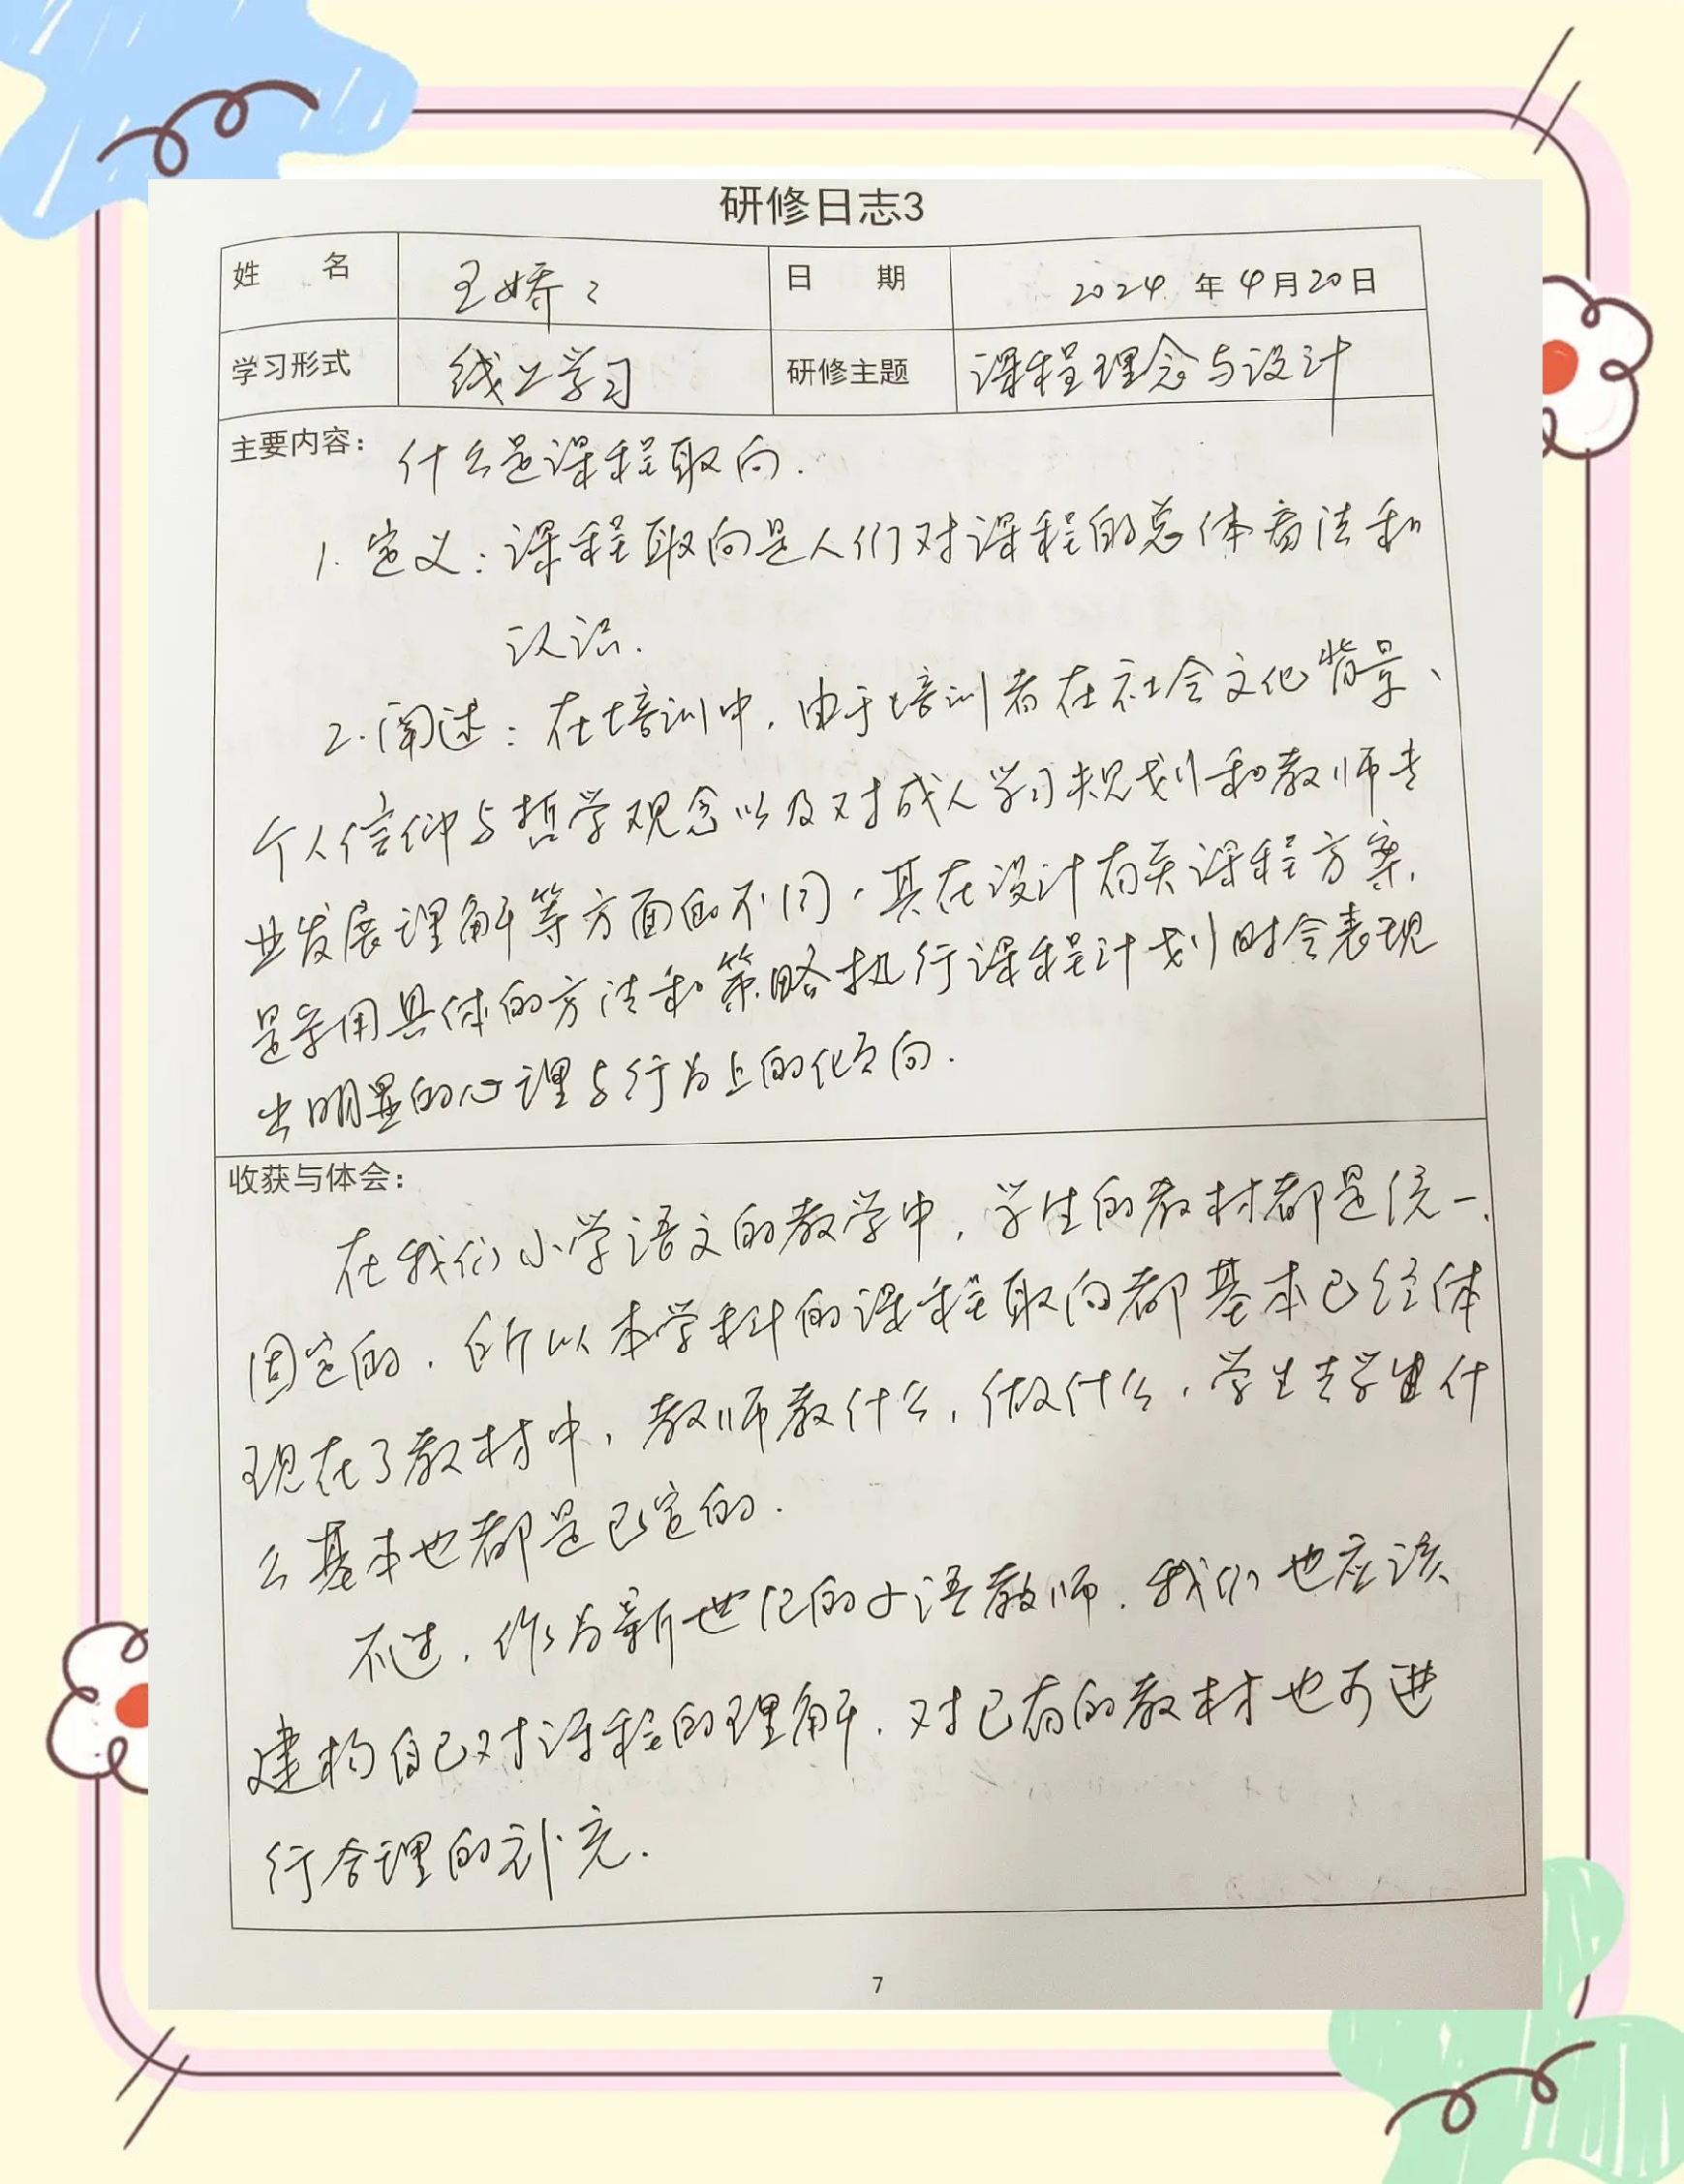 研修日志3
姓 名 王娇娇 日 期 2024 年 4月20日
学习形式 线上学习 研修主题 课程理念与设计
主要内容: 什么是课程取向.
1. 定义: 课程取向是人们对课程的总体看法和
认识.
2. 阐述: 在培训中, 由于培训者在社会文化背景、
个人信仰与哲学观念以及对成人学习规划和教师专
业发展理解等方面的不同, 其在设计有关课程方案,
是采用具体的方法和策略执行课程计划时会表现
出明显的心理与行为上的倾向.
收获与体会:
在我们小学语文的教学中, 学生的教材都是统一、
固定的, 所以本学科的课程取向都基本已经体
现在了教材中, 教师教什么, 做什么, 学生去学什
么基本也都是已定的.
不过, 作为新世纪的小语教师, 我们也应该
建构自己对课程的理解, 对已有的教材也可进
行合理的补充.
7